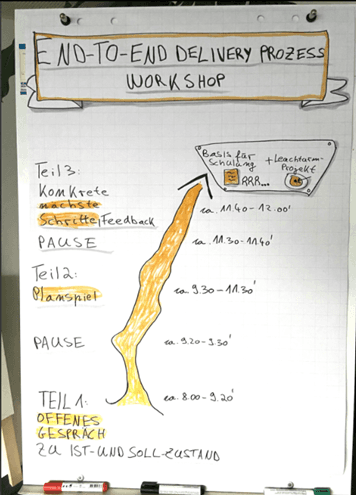 END-TO-END DELIVERY PROZESS
WORKSHOP
Basis für
Schulung
RRR...
+ Leuchtturm-
Projekt
Teil 3:
Konkrete
nächste
Schritte/Feedback
ca. 11.40 - 12.00'
PAUSE
ca. 11.30 - 11.40'
Teil 2:
Planspiel
ca. 9.30 - 11.30'
PAUSE
ca. 9.20 - 9.30'
TEIL 1:
ca. 8.00 - 9.20'
OFFENES
GESPRÄCH
ZU IST- UND SOLL-ZUSTAND